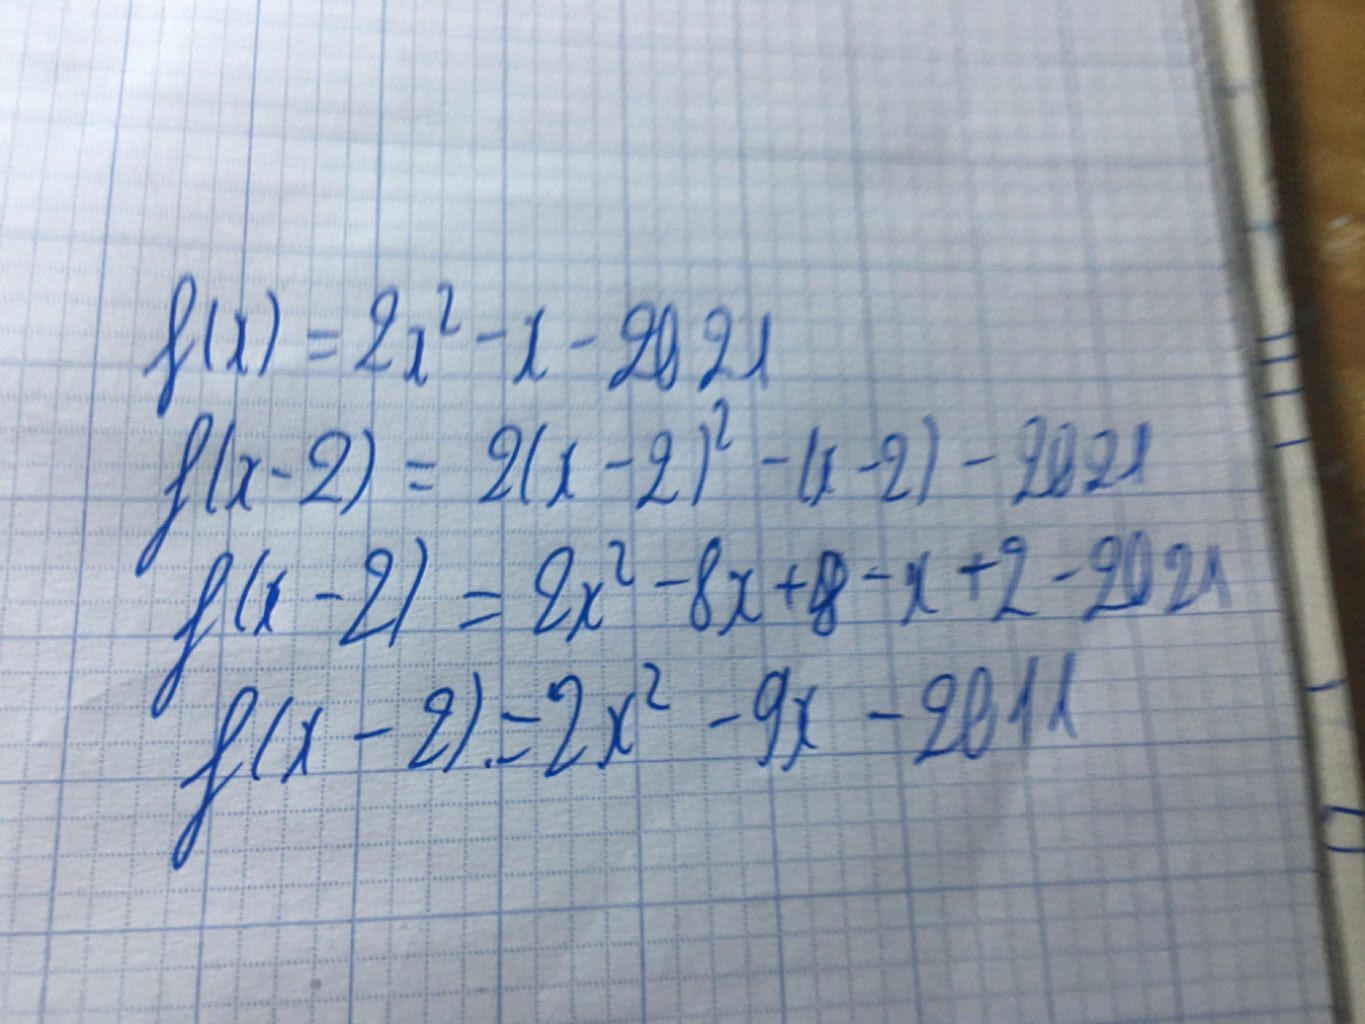 f(x) = 2x² - x - 2021
f(x-2) = 2(x-2)² - (x-2) - 2021
f(x-2) = 2x² - 8x + 8 - x + 2 - 2021
f(x-2) = 2x² - 9x - 2011